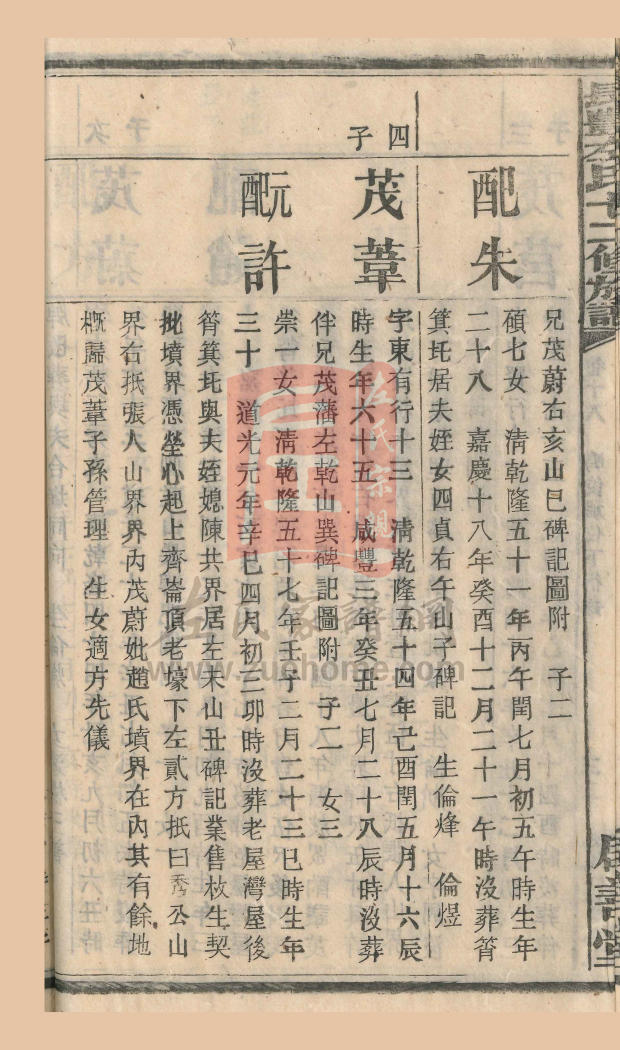 左氏十二修族譜
兄茂蔚右亥山巳碑記圖附 子二
配朱
碩七女 清乾隆五十一年丙午閏七月初五午時生年
二十八 嘉慶十八年癸酉十二月二十一午時沒葬筲
箕圫居夫姪女四貞右午山子碑記 生倫烽 倫煜
四子
茂葦
字東有行十三 清乾隆五十四年己酉閏五月十六辰
時生年六十五 咸豐三年癸丑七月二十八辰時沒葬
伴兄茂藩左乾山巽碑記圖附 子二 女三
元配許
崇一女 清乾隆五十七年壬子二月二十三巳時生年
三十 道光元年辛巳四月初三卯時沒葬老屋灣屋後
筲箕圫與夫姪媳陳共界居左未山丑碑記業售枚生契
批墳界憑塋心起上齊崙頂老壕下左貳方抵曰秀公山
界右抵張人山界界內茂蔚妣趙氏墳界在內其有餘地
概歸茂葦子孫管理 生女適方先儀
左氏宗親
左氏家譜網
www.zuohome.com